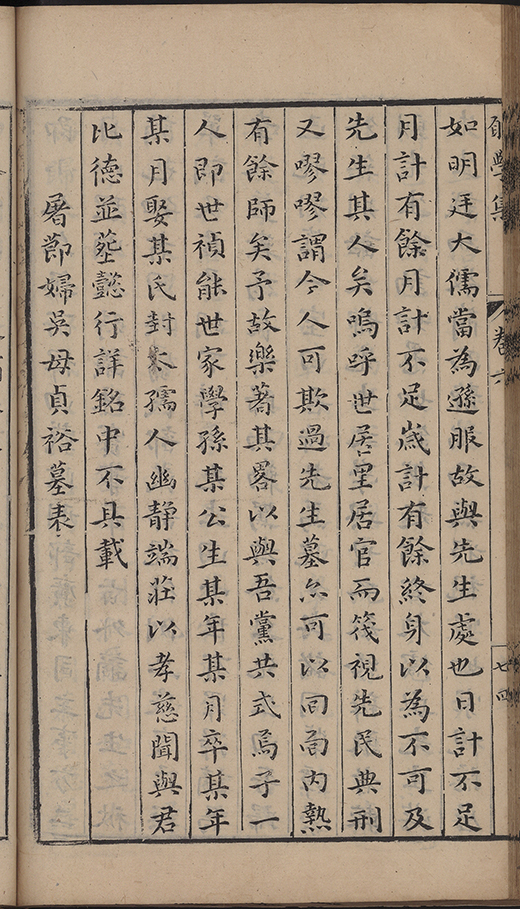 願學集
卷六
七四
如明廷大儒當為遜服故與先生處也日計不足
月計有餘月計不足歲計有餘終身以為不可及
先生其人矣嗚呼世居里居官而篾視先民典刑
又嘐嘐謂今人可欺過先生墓亦可以回面內熱
有餘師矣予故樂著其畧以與吾黨共式焉子一
人即世禎能世家學孫某公生某年某月卒某年
某月娶某氏封太孺人幽静端莊以孝慈聞與君
比德並塟懿行詳銘中不具載
屠節婦吳母貞裕墓表